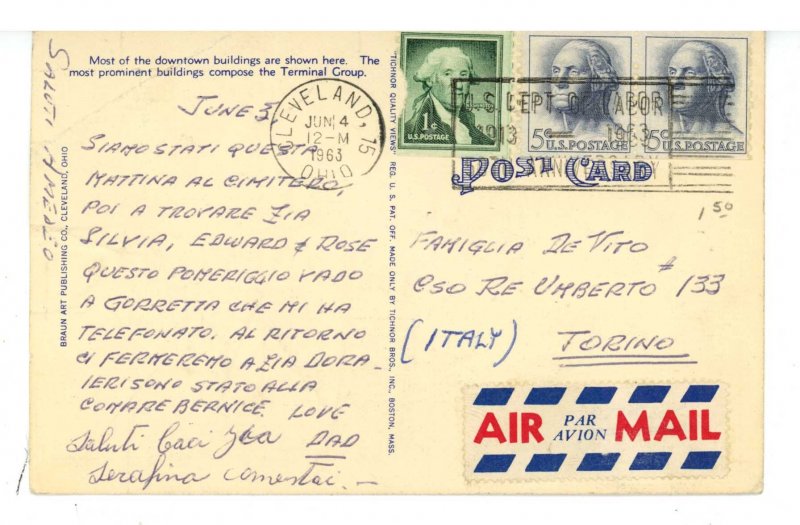 Most of the downtown buildings are shown here. The
most prominent buildings compose the Terminal Group.
JUNE 3,
SIAMO STATI QUESTA
MATTINA AL CIMITERO,
POI A TROVARE ZIA
SILVIA, EDWARD & ROSE
QUESTO POMERIGGIO VADO
A GORRETTA CHE MI HA
TELEFONATO. AL RITORNO
CI FERMEREMO A ZIA DORA-
IERI SONO STATO ALLA
COMARE BERNICE. LOVE
DAD
Saluti Baci Zia
Serafina comestai -
SALUTI A
BRAUN ART PUBLISHING CO., CLEVELAND, OHIO
"TICHNOR QUALITY VIEWS" REG. U. S. PAT. OFF. MADE ONLY BY TICHNOR BROS., INC., BOSTON, MASS.
CLEVELAND, 15
JUN 4
12-M
1963
OHIO
1¢
U.S. POSTAGE
5¢ U.S. POSTAGE
5¢ U.S. POSTAGE
U.S. DEPT OF LABOR
1913 — 1963
ANNIVERSARY
POST CARD
1 50
FAMIGLIA DE VITO
CSO RE UMBERTO # 133
(ITALY) TORINO
AIR PAR AVION MAIL